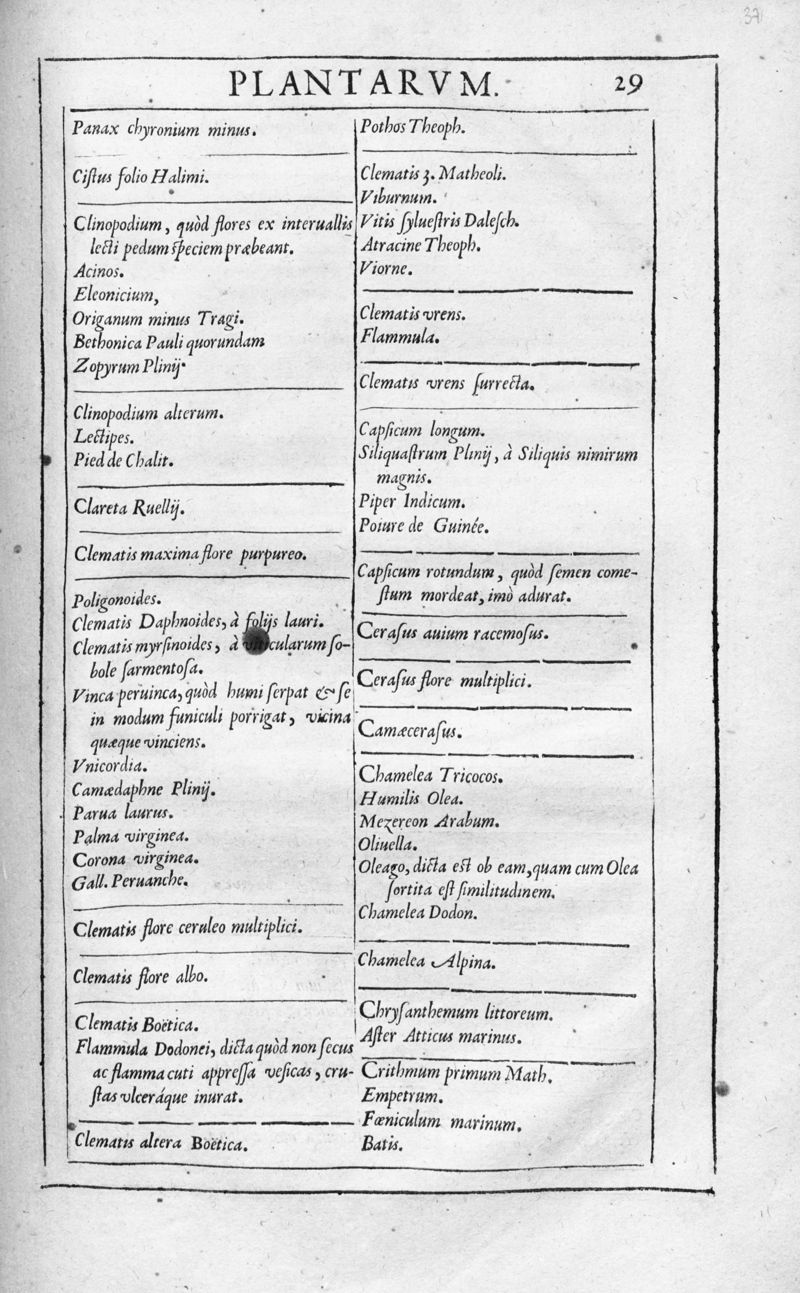 37
PLANTARVM. 29
Panax chyronium minus.
Ciſtus folio Halimi.
Clinopodium, quòd flores ex interuallis
lecti pedum ſpeciem præbeant.
Acinos.
Eleonicium,
Origanum minus Tragi.
Bethonica Pauli quorundam
Zopyrum Plinij.
Clinopodium alterum.
Lectipes.
Pied de Chalit.
Clareta Ruellij.
Clematis maxima flore purpureo.
Poligonoides.
Clematis Daphnoides, à folijs lauri.
Clematis myrſinoides, à viticularum ſo-
bole ſarmentoſa.
Vinca peruinca, quòd humi ſerpat & ſe
in modum funiculi porrigat, vicina
quæque vinciens.
Vnicordia.
Camædaphne Plinij.
Parua laurus.
Palma virginea.
Corona virginea.
Gall. Peruanche.
Clematis flore ceruleo multiplici.
Clematis flore albo.
Clematis Boëtica.
Flammula Dodonei, dicta quòd non ſecus
ac flamma cuti appreſſa veſicas, cru-
ſtas vlceráque inurat.
Clematis altera Boëtica.
Pothos Theoph.
Clematis 3. Matheoli.
Viburnum.
Vitis ſylueſtris Daleſch.
Atracine Theoph.
Viorne.
Clematis vrens.
Flammula.
Clematis vrens ſurrecta.
Capſicum longum.
Siliquaſtrum Plinij, à Siliquis nimirum
magnis.
Piper Indicum.
Poiure de Guinée.
Capſicum rotundum, quòd ſemen come-
ſtum mordeat, imò adurat.
Ceraſus auium racemoſus.
Ceraſus flore multiplici.
Camæceraſus.
Chamelea Tricocos.
Humilis Olea.
Mezereon Arabum.
Oliuella.
Oleago, dicta eſt ob eam, quam cum Olea
ſortita eſt ſimilitudinem.
Chamelea Dodon.
Chamelea Alpina.
Chryſanthemum littoreum.
Aſter Atticus marinus.
Crithmum primum Math.
Empetrum.
Fœniculum marinum.
Batis.